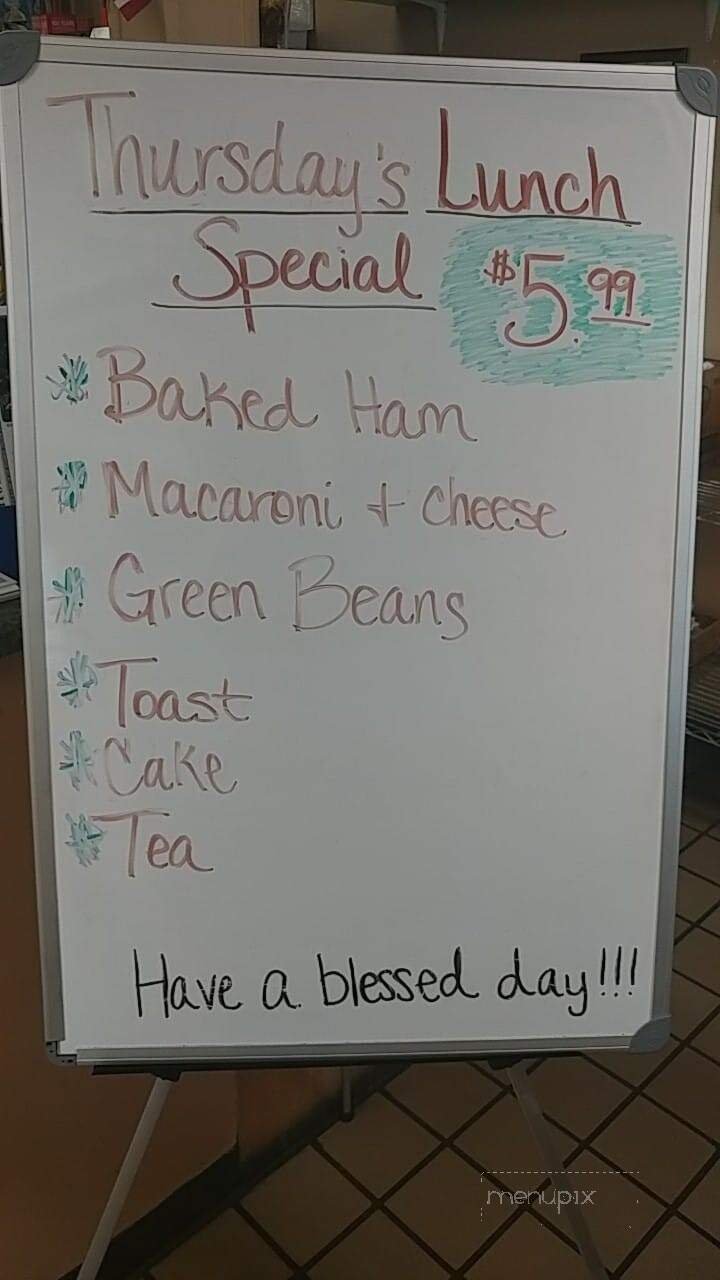 Thursday's Lunch
Special $5.99
* Baked Ham
* Macaroni + cheese
* Green Beans
* Toast
* Cake
* Tea
Have a blessed day!!!
menupix